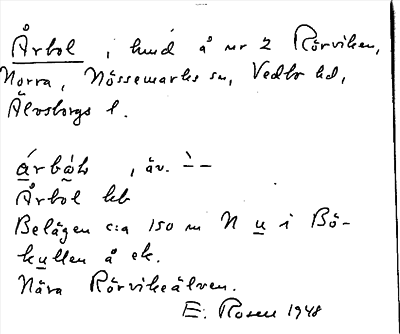 Årbol, hmd å nr 2 Rörviken,
Norra, Nössemarks sn, Vedbo hd,
Älvsborgs l.
árbòh, äv. ̀– –
Årbol hb
Belägen c:a 150 m N u i Bö-
kullen å ek.
Nära Rörvikeälven.
E. Rosell 1948